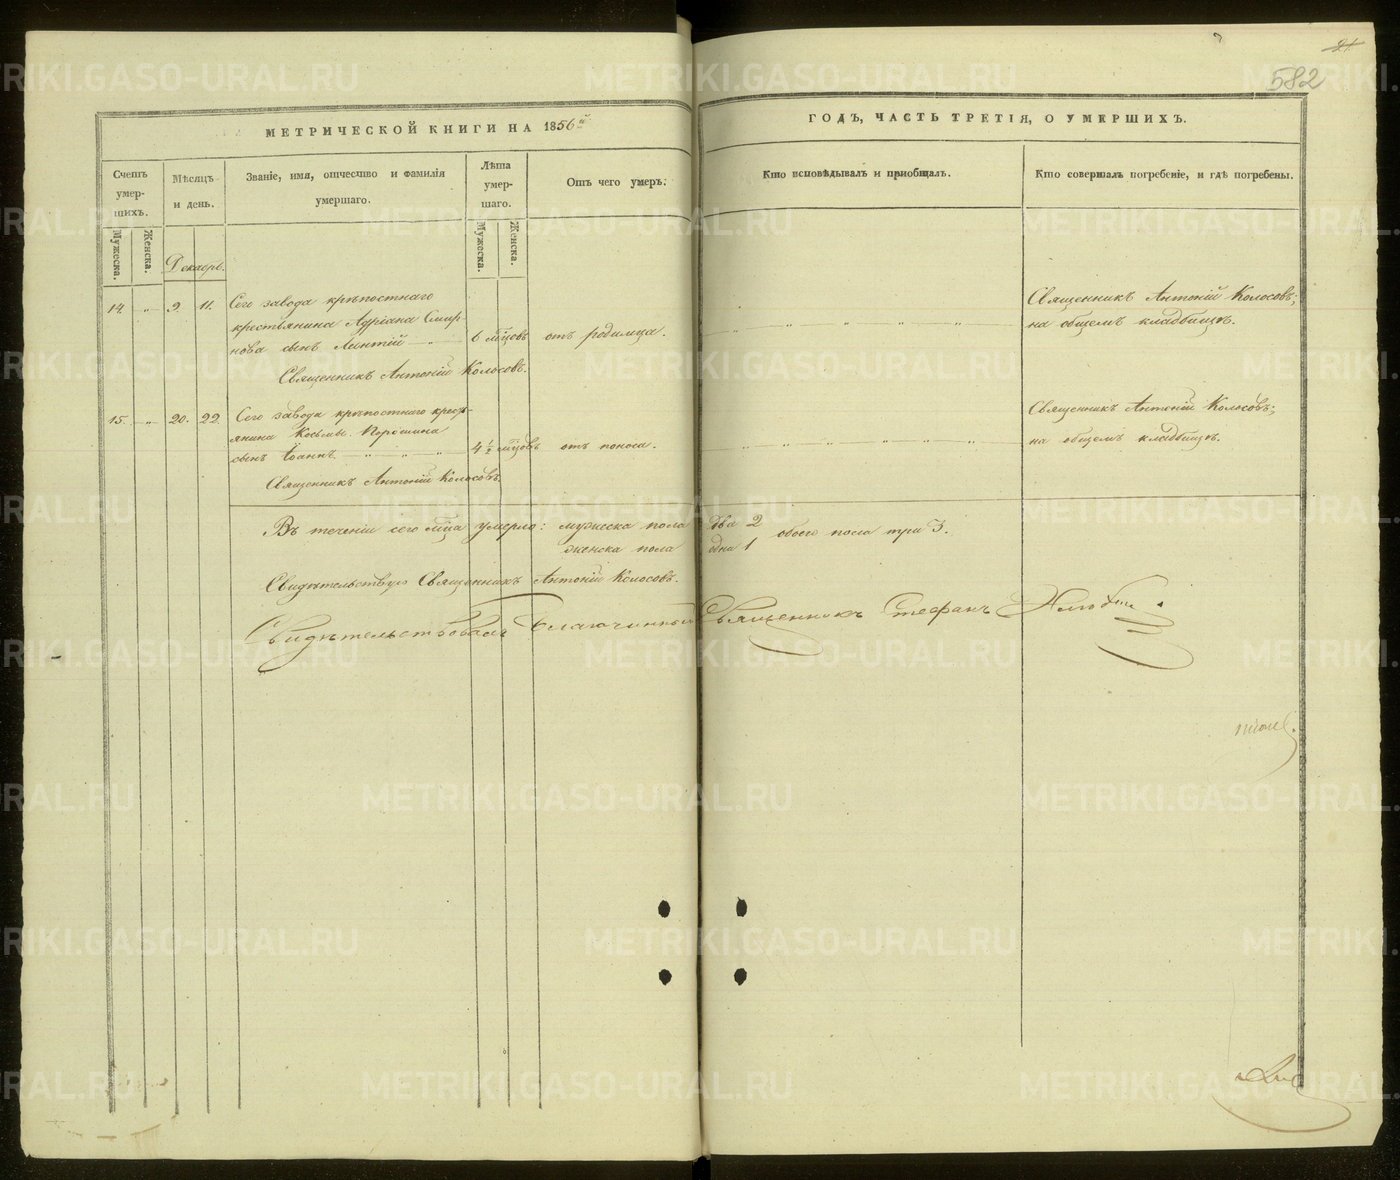 21
582
МЕТРИЧЕСКОЙ КНИГИ НА 1856й
ГОДЪ, ЧАСТЬ ТРЕТІЯ, О УМЕРШИХЪ.
Счетъ умер-
шихъ.
Мужеска.
Женска.
Мѣсяцъ
и день.
Званіе, имя, отчество и фамилія
умершаго.
Лѣта
умер-
шаго.
Мужеска.
Женска.
Отъ чего умеръ.
Кто исповѣдывалъ и пріобщалъ.
Кто совершалъ погребеніе, и гдѣ погребены.
Декабрь.
14. „ 9. 11. Сего завода крѣпостнаго
крестьянина Адріана Смир-
нова сынъ
6 мѣцовъ отъ родимца.
Священникъ Антоній Колосовъ;
на общемъ кладбищѣ.
Священникъ Антоній Колосовъ.
15. „ 20. 22. Сего завода крѣпостнаго крест-
янина Косьмы Порошина
сынъ Іоаннъ.
4 ½ мѣцовъ отъ поноса.
Священникъ Антоній Колосовъ;
на общемъ кладбищѣ.
Священникъ Антоній Колосовъ.
Въ теченіи сего мѣца умерло: мужеска пола два 2
женска пола одна 1
обоего пола три 3.
Свидѣтельствую Священникъ Антоній Колосовъ.
Свидѣтельствовалъ Благочинный Священникъ Стефанъ
METRIKI.GASO-URAL.RU